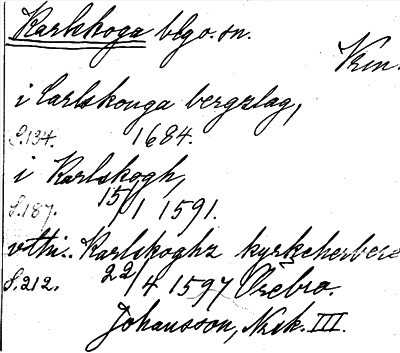 Karlskoga blgo.sn.
Vrm.
i Carlskouga bergzlag,
S.134. 1684.
i Karlskogh,
S.187. 15/1 1591.
vthi.. Karlskoghz kyrkeherbere
S.212. 22/4 1597 Örebro.
Johansson, Nrsk. III.